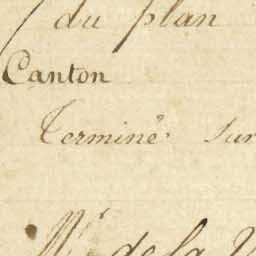 du plan
Canton
Terminé sur
de la